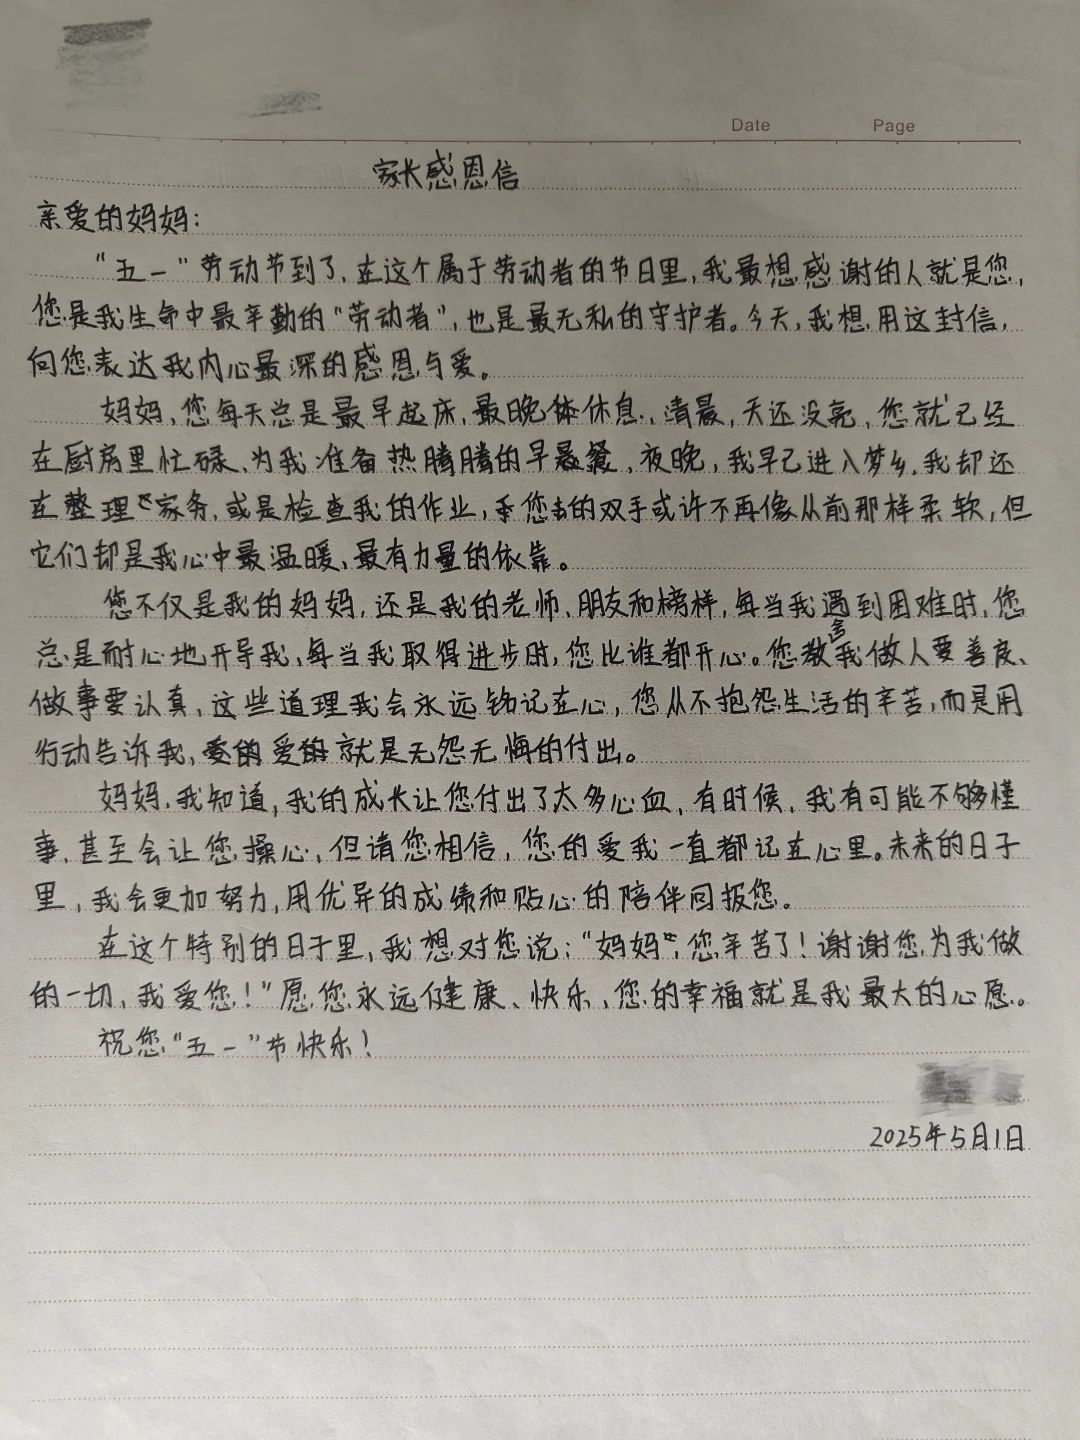 Date Page
家长感恩信
亲爱的妈妈:
“五一”劳动节到了,在这个属于劳动者的节日里,我最想感谢的人就是您,
您是我生命中最辛勤的“劳动者”,也是最无私的守护者。今天,我想用这封信,
向您表达我内心最深的感恩与爱。
妈妈,您每天总是最早起床,最晚休息,清晨,天还没亮,您就已经
在厨房里忙碌,为我准备热腾腾的早餐,夜晚,我早已进入梦乡,我却还
在整理家务,或是检查我的作业,您的双手或许不再像从前那样柔软,但
它们却是我心中最温暖、最有力量的依靠。
您不仅是我的妈妈,还是我的老师、朋友和榜样,每当我遇到困难时,您
总是耐心地开导我、每当我取得进步时,您比谁都开心。您教会我做人要善良、
做事要认真,这些道理我会永远铭记在心,您从不抱怨生活的辛苦,而是用
行动告诉我,爱的就是无怨无悔的付出。
妈妈,我知道,我的成长让您付出了太多心血,有时候,我有可能不够懂
事,甚至会让您操心,但请您相信,您的爱我一直都记在心里。未来的日子
里,我会更加努力,用优异的成绩和贴心的陪伴回报您。
在这个特别的日子里,我想对您说:“妈妈,您辛苦了!谢谢您为我做
的一切,我爱您!”愿您永远健康、快乐,您的幸福就是我最大的心愿。
祝您“五一”节快乐!
2025年5月1日